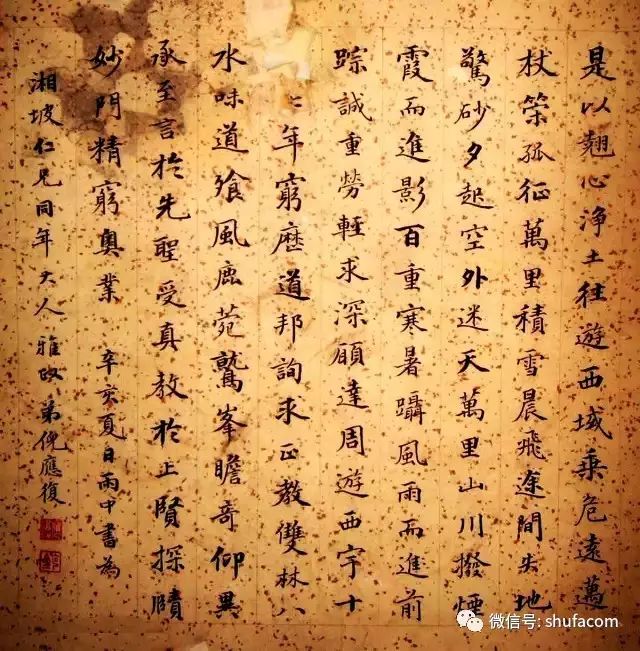 是以翹心浄土往遊西域乘危遠邁
杖策孤征萬里積雪晨飛途間失地
驚砂夕起空外迷天萬里山川撥煙
霞而進影百重寒暑躡風雨而進前
踪誠重勞輕求深願達周遊西宇十
年窮歷道邦詢求正教雙林八
水味道飡風鹿苑鷲峯瞻奇仰異
承至言於先聖受真教於上賢探賾
妙門精窮奧業 辛亥夏日雨中書為
湘坡仁兄同年大人 雅政 弟倪應復
微信号: shufacom